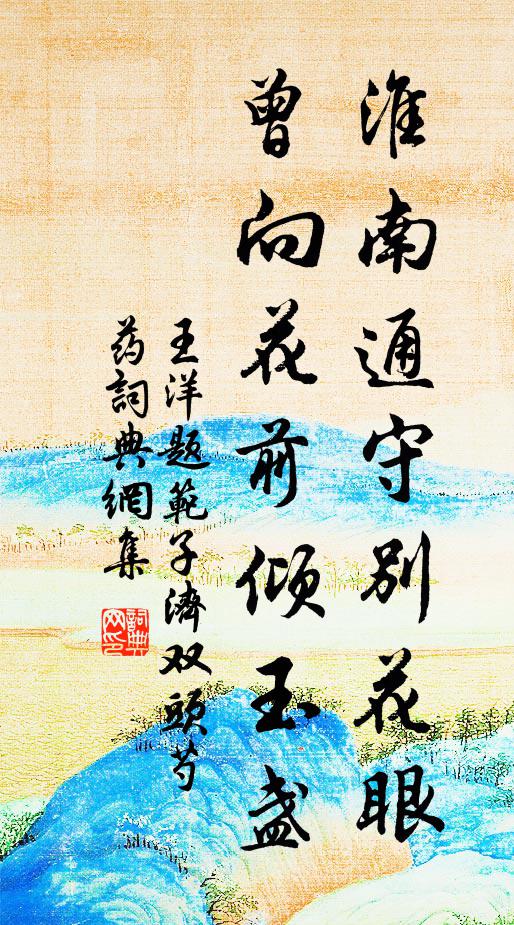 淮南通守别花眼
曾向花前倾玉盏
王洋题範子濟双頭芍
药詞典網集
詞典网印